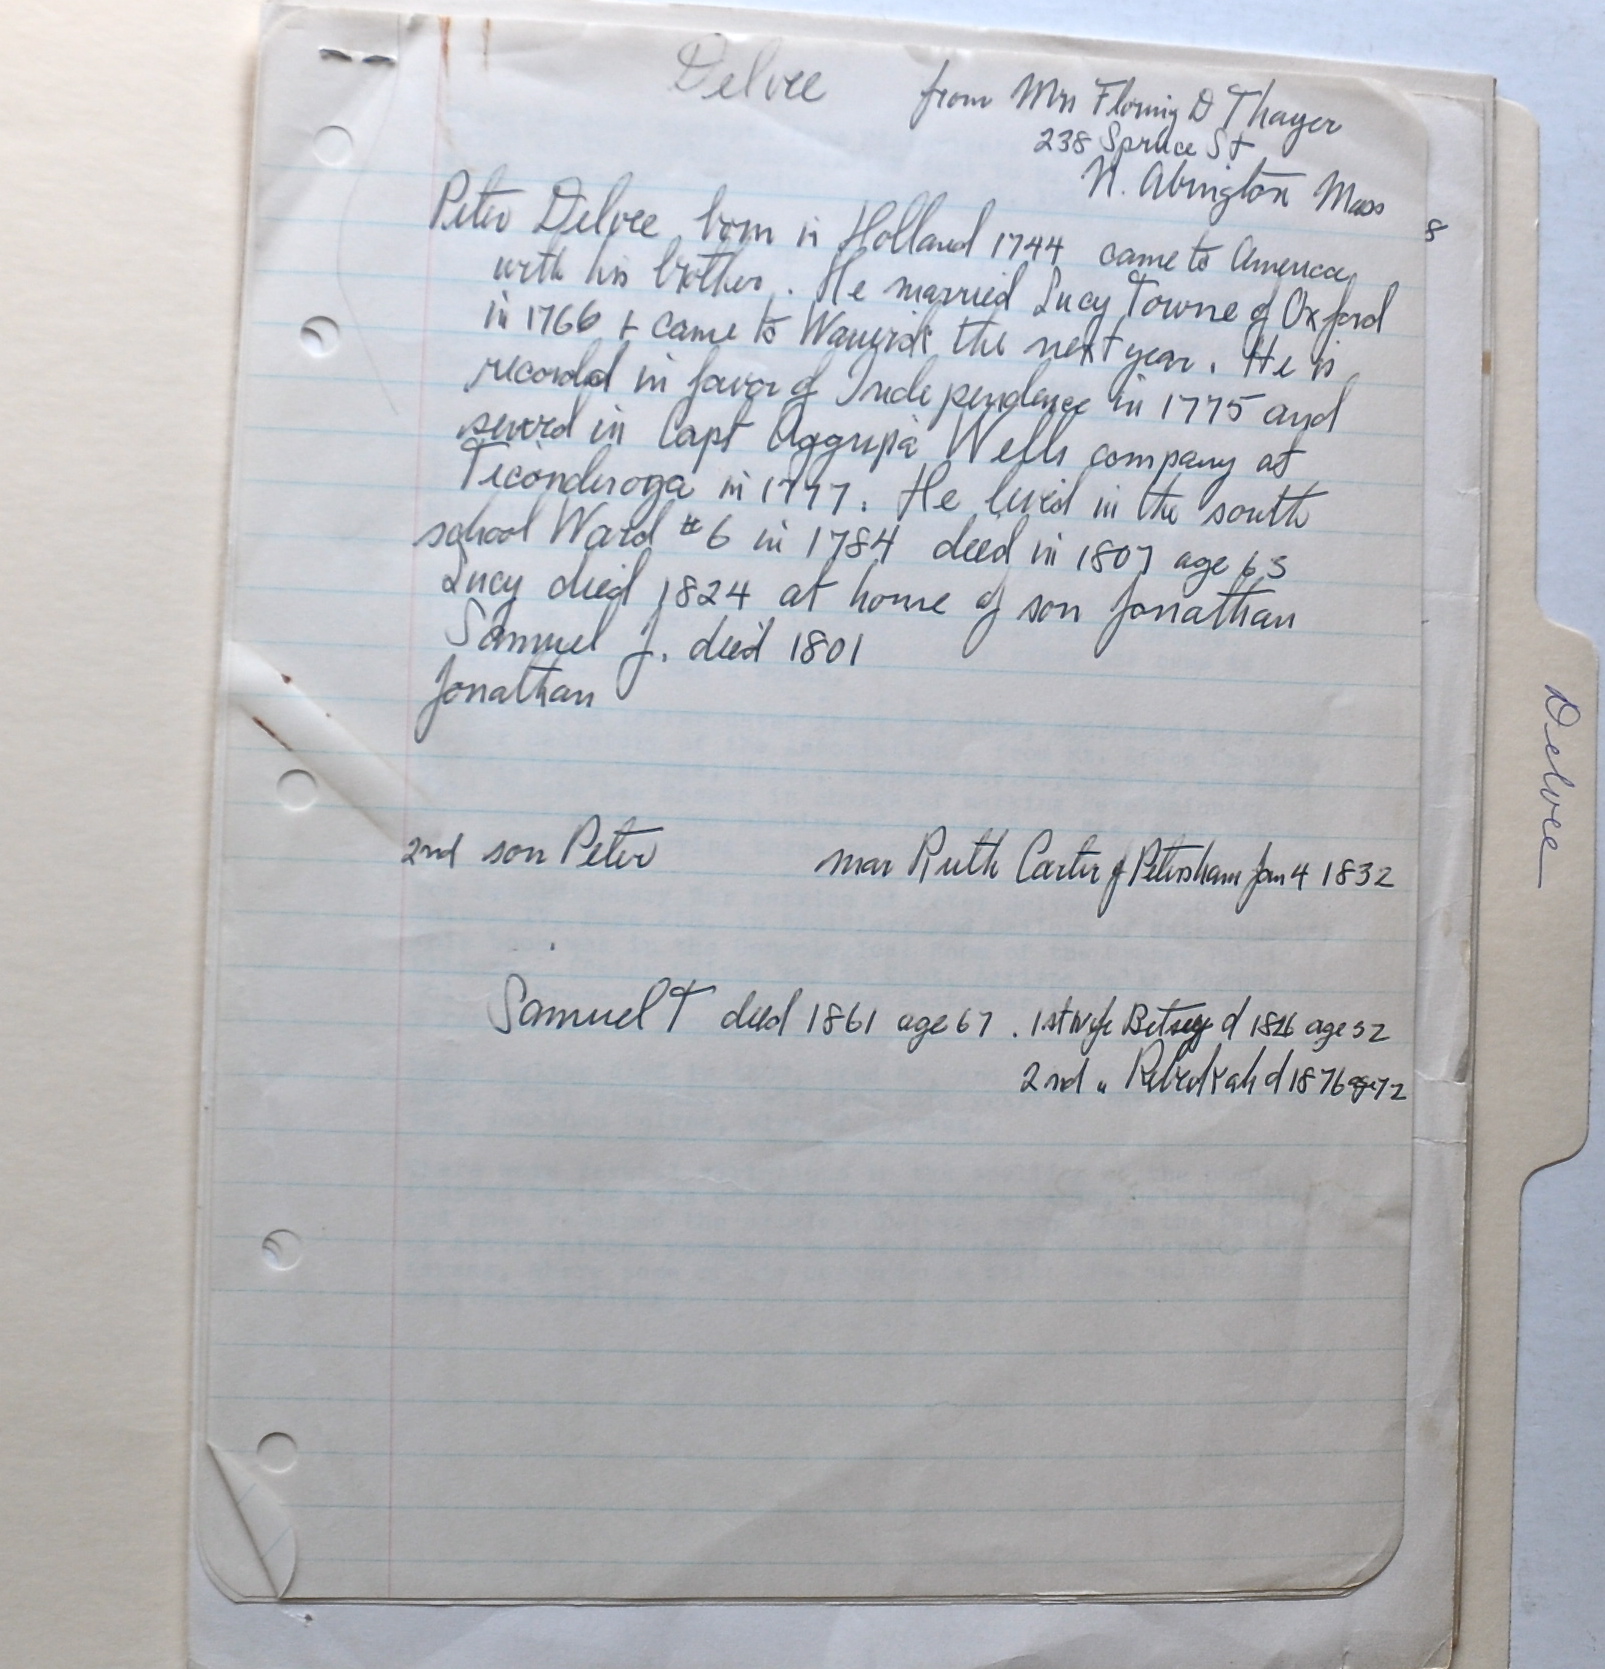 Delvee
from Mrs Fleming D Thayer
238 Spruce St
N. Abington Mass
8
Peter Delvee born in Holland 1744 came to America
with his brother. He married Lucy Towne of Oxford
in 1766 + came to Warwick the next year. He is
recorded in favor of Independence in 1775 and
served in Capt Aggripa Wells company at
Ticonderoga in 1777. He lived in the south
school Ward #6 in 1784 died in 1807 age 63
Lucy died 1824 at home of son Jonathan
Samuel J. died 1801
Jonathan
2nd son Peter mar Ruth Carter of Petersham Jan 4 1832
Samuel T died 1861 age 67. 1st wife Betsey d 1826 age 32
2nd " d 1876 age 72
Delvee